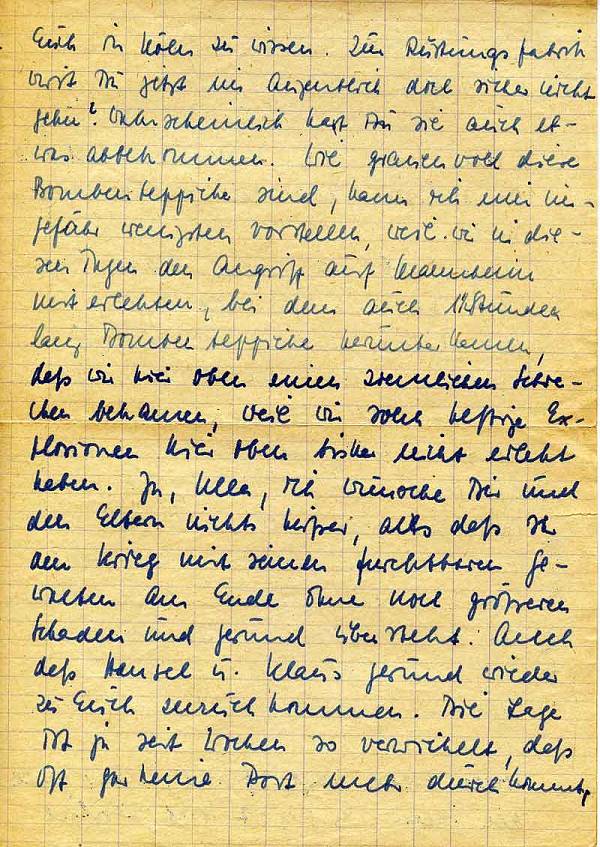 Euch in Köln zu wissen. Zur Rüstungsfabrik
wirst Du jetzt im Augenblick doch sicher nicht
gehn? Wahrscheinlich hast Du sie auch et-
was abbekommen. Wie grauenvoll diese
Bombenteppiche sind, kann ich mir un-
gefähr wenigsten vorstellen, weil wir in die-
sen Tagen den Angriff auf Mannheim
miterlebten, bei dem auch Stunden
lang Bombenteppiche herunter kamen,
daß wir hier oben einen ziemlichen Schre-
cken bekamen, weil wir solch heftige Ex-
plosionen hier oben bisher nicht erlebt
haben. Ja, Ulla, ich wünsche Dir und
den Eltern nichts heißer, alls daß Ihr
den Krieg mit seinen furchtbaren Ge-
walten am Ende ohne noch größeren
Schaden und gesund übersteht. Auch
daß Hansel u. Klaus gesund wieder
zu Euch zurückkommen. Die Lage
ist ja seit Wochen so verwickelt, daß
oft gar keine Post mehr durchkommt,